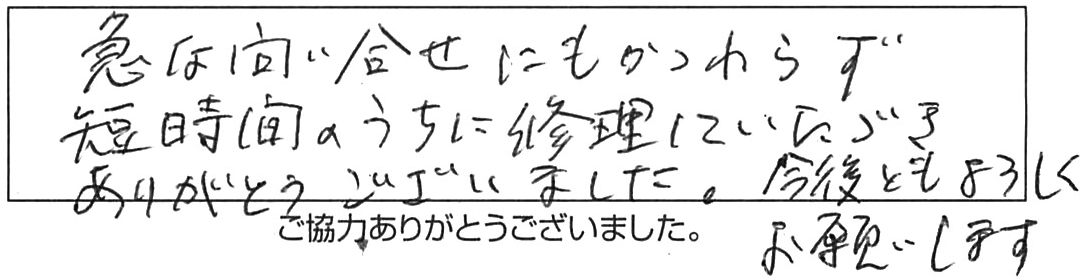 急な問い合せにもかかわらず
短時間のうちに修理していただき
ありがとうございました。今後ともよろしく
お願いします
ご協力ありがとうございました。